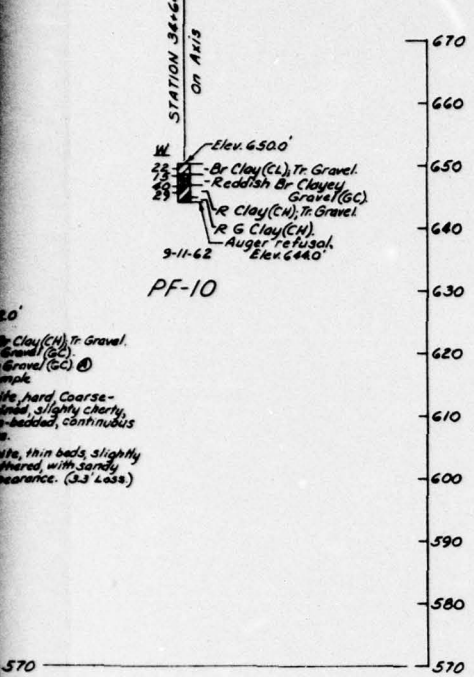 STATION 34+6
On Axis
W
22
15
40
29
Elev. 650.0'
Br Clay(CL); Tr. Gravel.
Reddish Br Clayey
Gravel(GC).
R Clay(CH); Tr. Gravel.
R G Clay(CH).
Auger refusal,
Elev. 644.0'
9-11-62
PF-10
2.0'
Br Clay(CH); Tr Gravel.
Gravel (GC).
Gravel (GC). A
hard, Coarse-
slighty cherty,
-bedded, continuous
thin beds, slightly
with sandy
(3.3' Loss.)
670
660
650
640
630
620
610
600
590
580
570
570